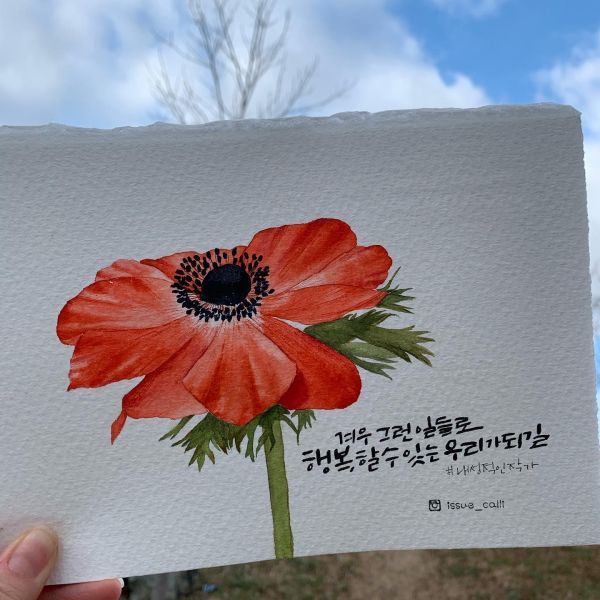 겨우 그런 일들로
행복할 수 있는 우리가 되길
#내성적인작가
issue_calli